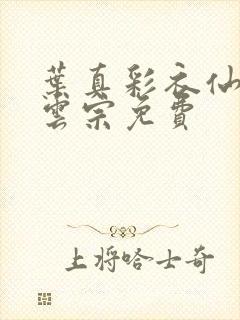 葉真彩衣仙
雲宗免費
上將哈士奇